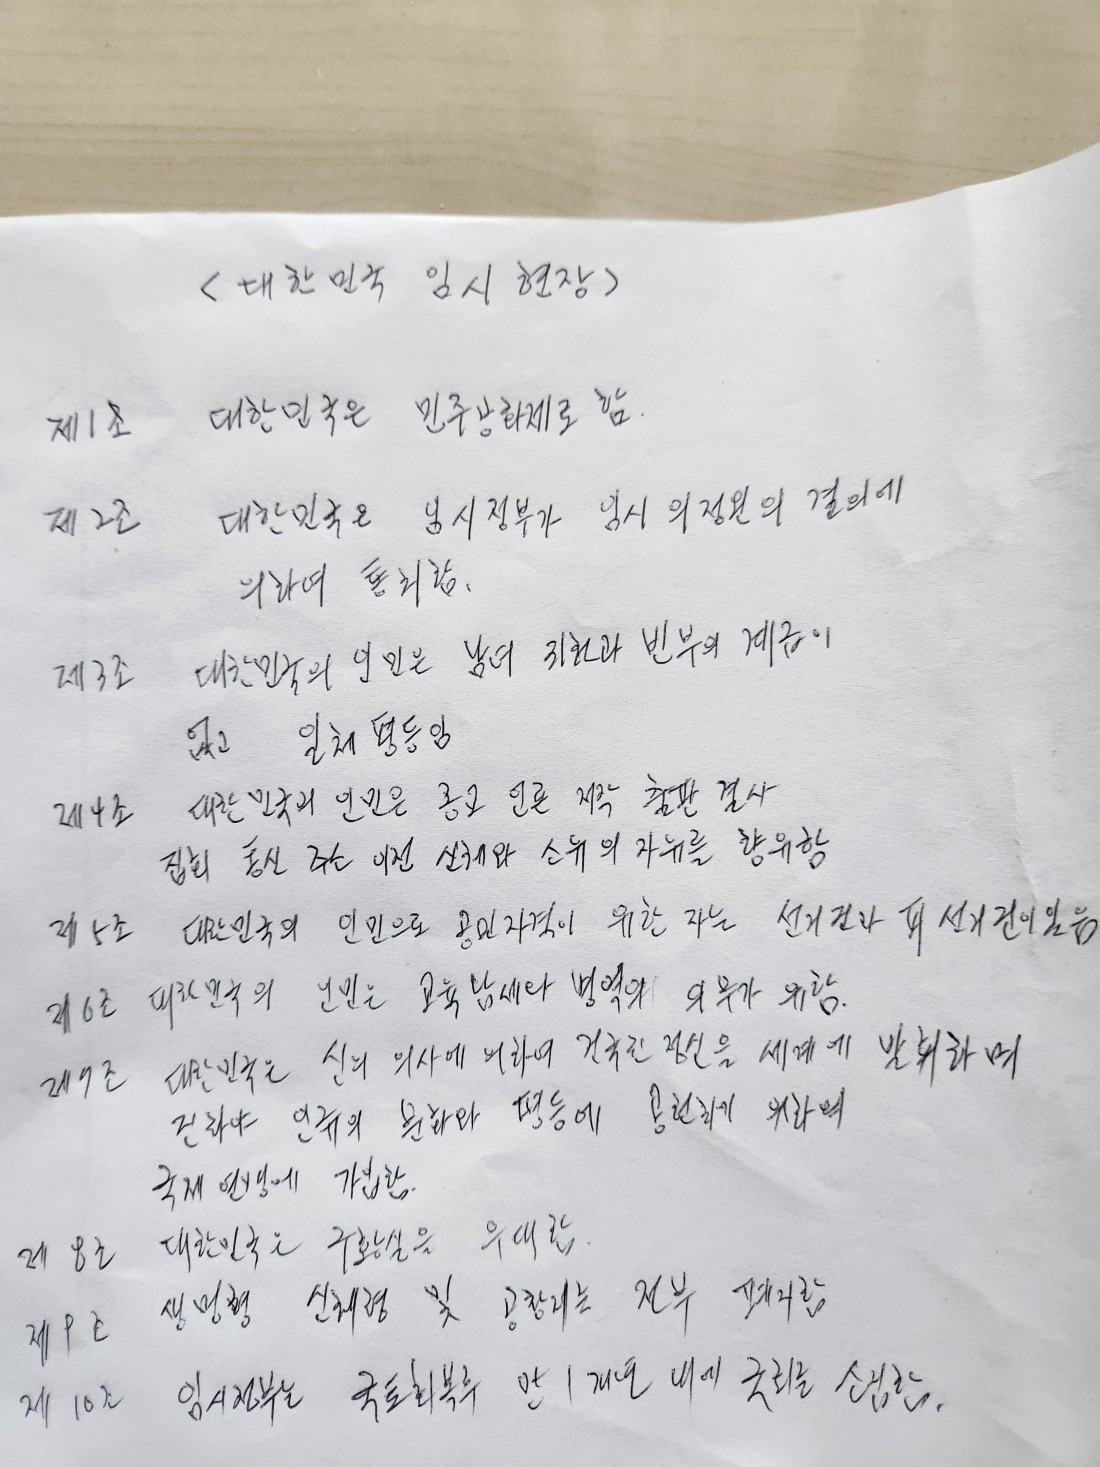 <대한민국 임시 헌장>
제1조 대한민국은 민주공화제로 함.
제2조 대한민국은 임시정부가 임시 의정원의 결의에
의하여 통치함.
제3조 대한민국의 인민은 남녀 귀천과 빈부의 계급이
없고 일체 평등임
제4조 대한민국의 인민은 종교 언론 저작 출판 결사
집회 통신 주소 이전 신체와 소유의 자유를 향유함
제5조 대한민국의 인민으로 공민자격이 유한 자는 선거권과 피 선거권이 있음
제6조 대한민국의 인민은 교육 납세와 병역의 의무가 유함.
제7조 대한민국은 신의 의사에 의하여 건국한 정신을 세계에 발휘하며
진하야 인류의 문화와 평등에 공헌하기 위하여
국제 연맹에 가입함.
제 8조 대한민국은 구황실을 우대함.
제9조 생명형 신체형 및 공창제는 전부 폐지함
제 10조 임시정부는 국토회복후 만 1개년 내에 국회를 소집함.